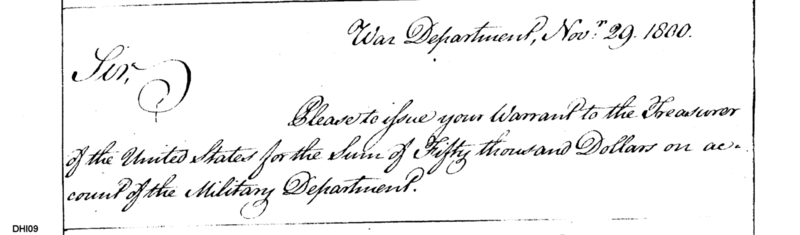 War Department, Nov.r 29. 1800.
Sir,
Please to issue your Warrant to the Treasurer
of the United States for the Sum of Fifty thousand Dollars on ac-
count of the Military Department.
DHI09